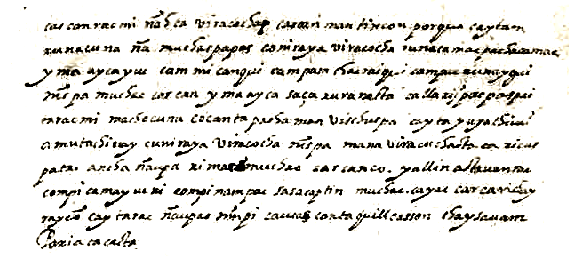 cascanracmi ñahca viracochap cascanman tincon porque caytam
runacuna ña muchaspapas coniraya viracocha runacamac pachacamac
yma aycayuc cam mi canqui campam chacraiqui campac runayqui
ñispa muchac carcan yma ayca saça ruranacta callarijpac paypac
tarac mi machucuna cocanta pachaman vischuspa cayta yuyachiuai
amutachiuay cuniraya viracocha ñispa mana viracochacta ricus
patac ancha ñaupa rimac muchac carcanco. yallinastauantac
compicamayucuni compinampac sasacaptin muchac cayac carcan chay
raycu caytarac ñaupac ñinpi causascanta quillcasson chaysauam
Pariacacacta